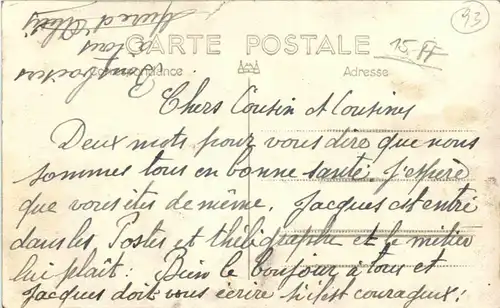 93
CARTE POSTALE
15-FF
Correspondance
Adresse
Chers Cousin et Cousines
Deux mots pour vous dire que nous
sommes tous en bonne santé. J'espère
que vous êtes de même. Jacques est entré
dans les Postes et thélégraphe et le métier
lui plait: Bien le bonjour à tous et
Jacques doit vous écrire s'il est couraqux:
à tous